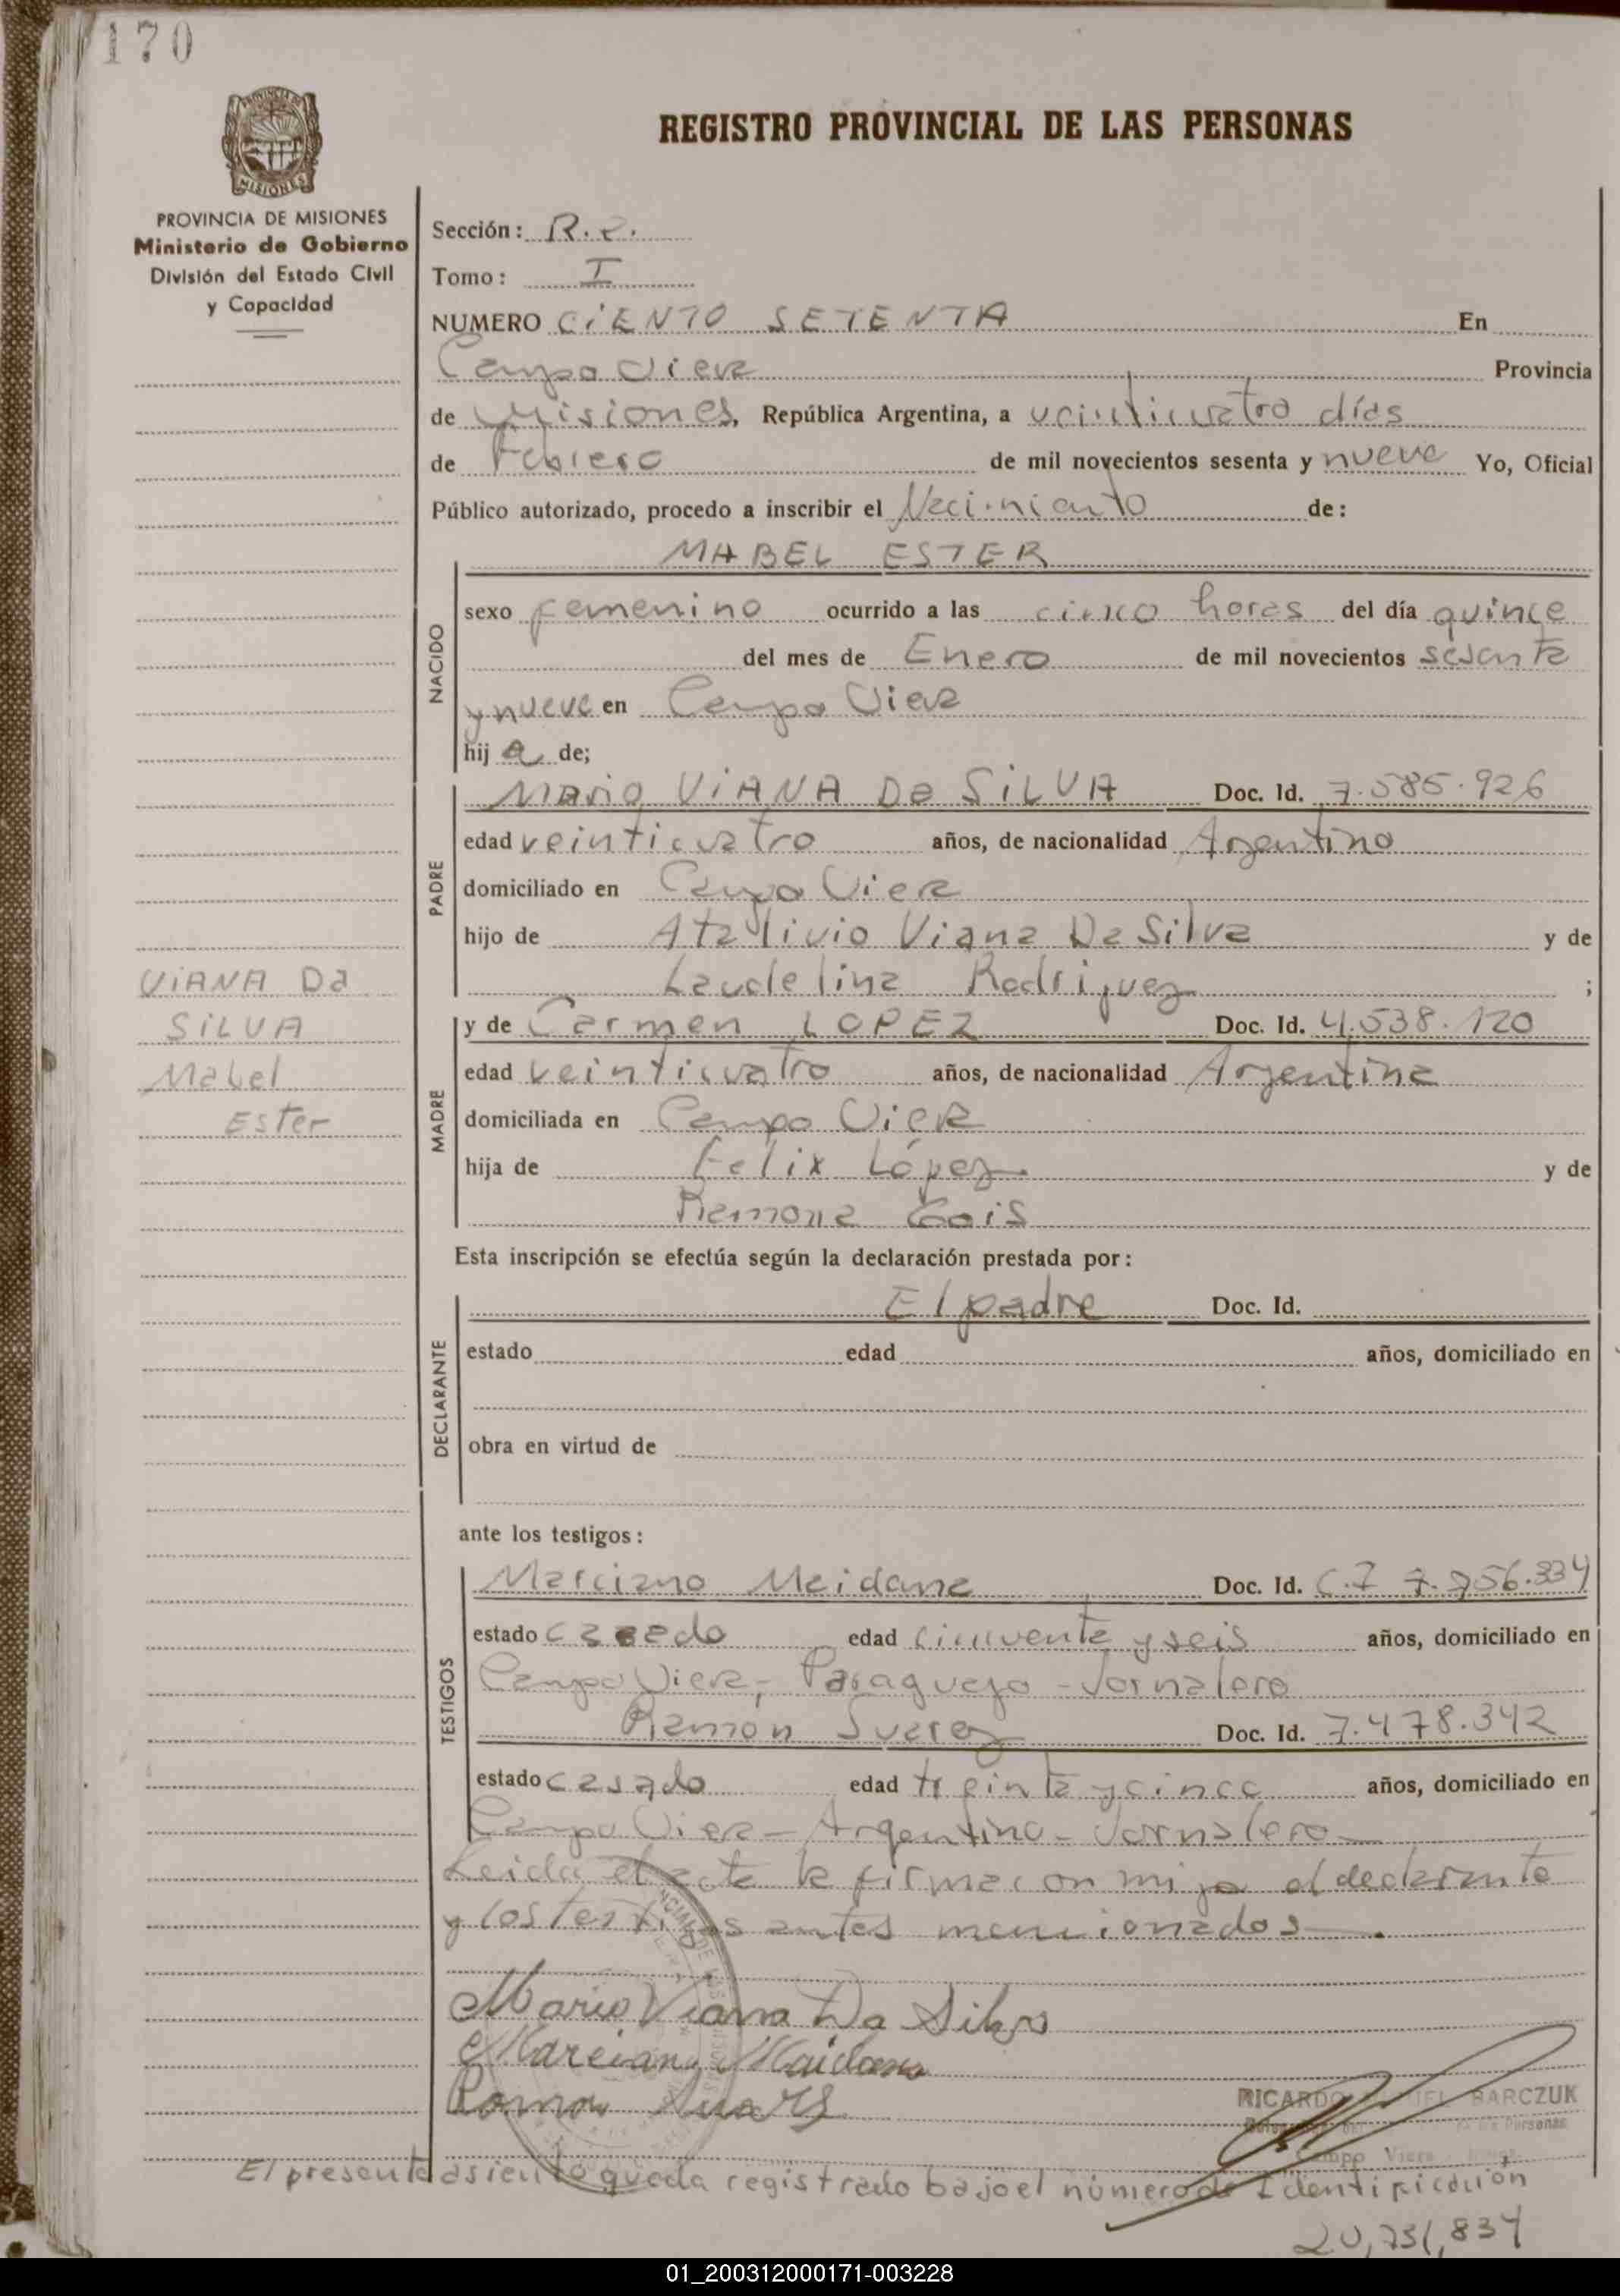 170
REGISTRO PROVINCIAL DE LAS PERSONAS
MISIONES
PROVINCIA DE MISIONES
Ministerio de Gobierno
División del Estado Civil
y Capacidad
Sección: R.c.
Tomo: I
NUMERO CiENTO SETENTA En
Campo Viera Provincia
de Misiones, República Argentina, a veinticuatro días
de Febrero de mil novecientos sesenta y nueve Yo, Oficial
Público autorizado, procedo a inscribir el Nacimiento de:
MABEL ESTER
NACIDO
sexo femenino ocurrido a las cinco horas del día quince
del mes de Enero de mil novecientos sesenta
y nueve en Campo Viera
hij a de;
PADRE
Mario ViANA Da SiLVA Doc. Id. 7.585.926
edad veinticuatro años, de nacionalidad Argentino
domiciliado en Campo Viera
hijo de Atalivio Viana Da Silva y de
Laudelina Rodriguez ;
VIANA Da
SiLVA
Mabel
Ester
MADRE
y de Carmen LOPEZ Doc. Id. 4.538.120
edad veinticuatro años, de nacionalidad Argentina
domiciliada en Campo Viera
hija de Felix López y de
Ramona Gois
Esta inscripción se efectúa según la declaración prestada por:
DECLARANTE
El padre Doc. Id.
estado edad años, domiciliado en
obra en virtud de
ante los testigos:
TESTIGOS
Marciano Maidana Doc. Id. C.I 7.956.334
estado casado edad cincuenta y seis años, domiciliado en
Campo Viera, Paraguayo - Jornalero
Ramón Suarez Doc. Id. 7.478.342
estado casado edad treinta y cinco años, domiciliado en
Campo Viera - Argentino - Jornalero
Leida el acta la firma con migo el declarante
y los testigos antes mencionados
Mario Viana Da Silva
Marciano Maidana
Ramon Suarez
RICARDO BARCZUK
Personas
Campo Viera
El presente asiento queda registrado bajo el número de Identificación
20,731,834
01_200312000171-003228